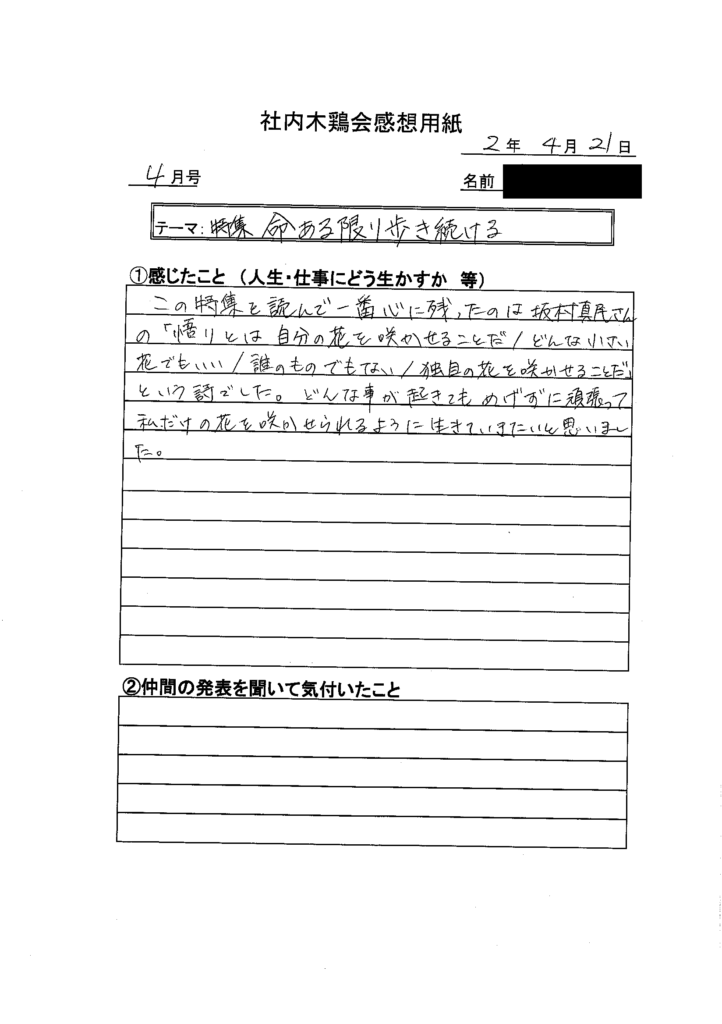 社内木鶏会感想用紙
2年 4月 21日
4月号
名前
テーマ：特集 命ある限り歩き続ける
①感じたこと（人生・仕事にどう生かすか 等）
この特集を読んで一番心に残ったのは坂村真民さん
の「悟りとは 自分の花を咲かせることだ/どんな小さい
花でもいい/誰のものでもない/独自の花を咲かせることだ」
という詩でした。どんな事が起きてもめげずに頑張って
私だけの花を咲かせられるように生きていきたいと思いまし
た。
②仲間の発表を聞いて気付いたこと